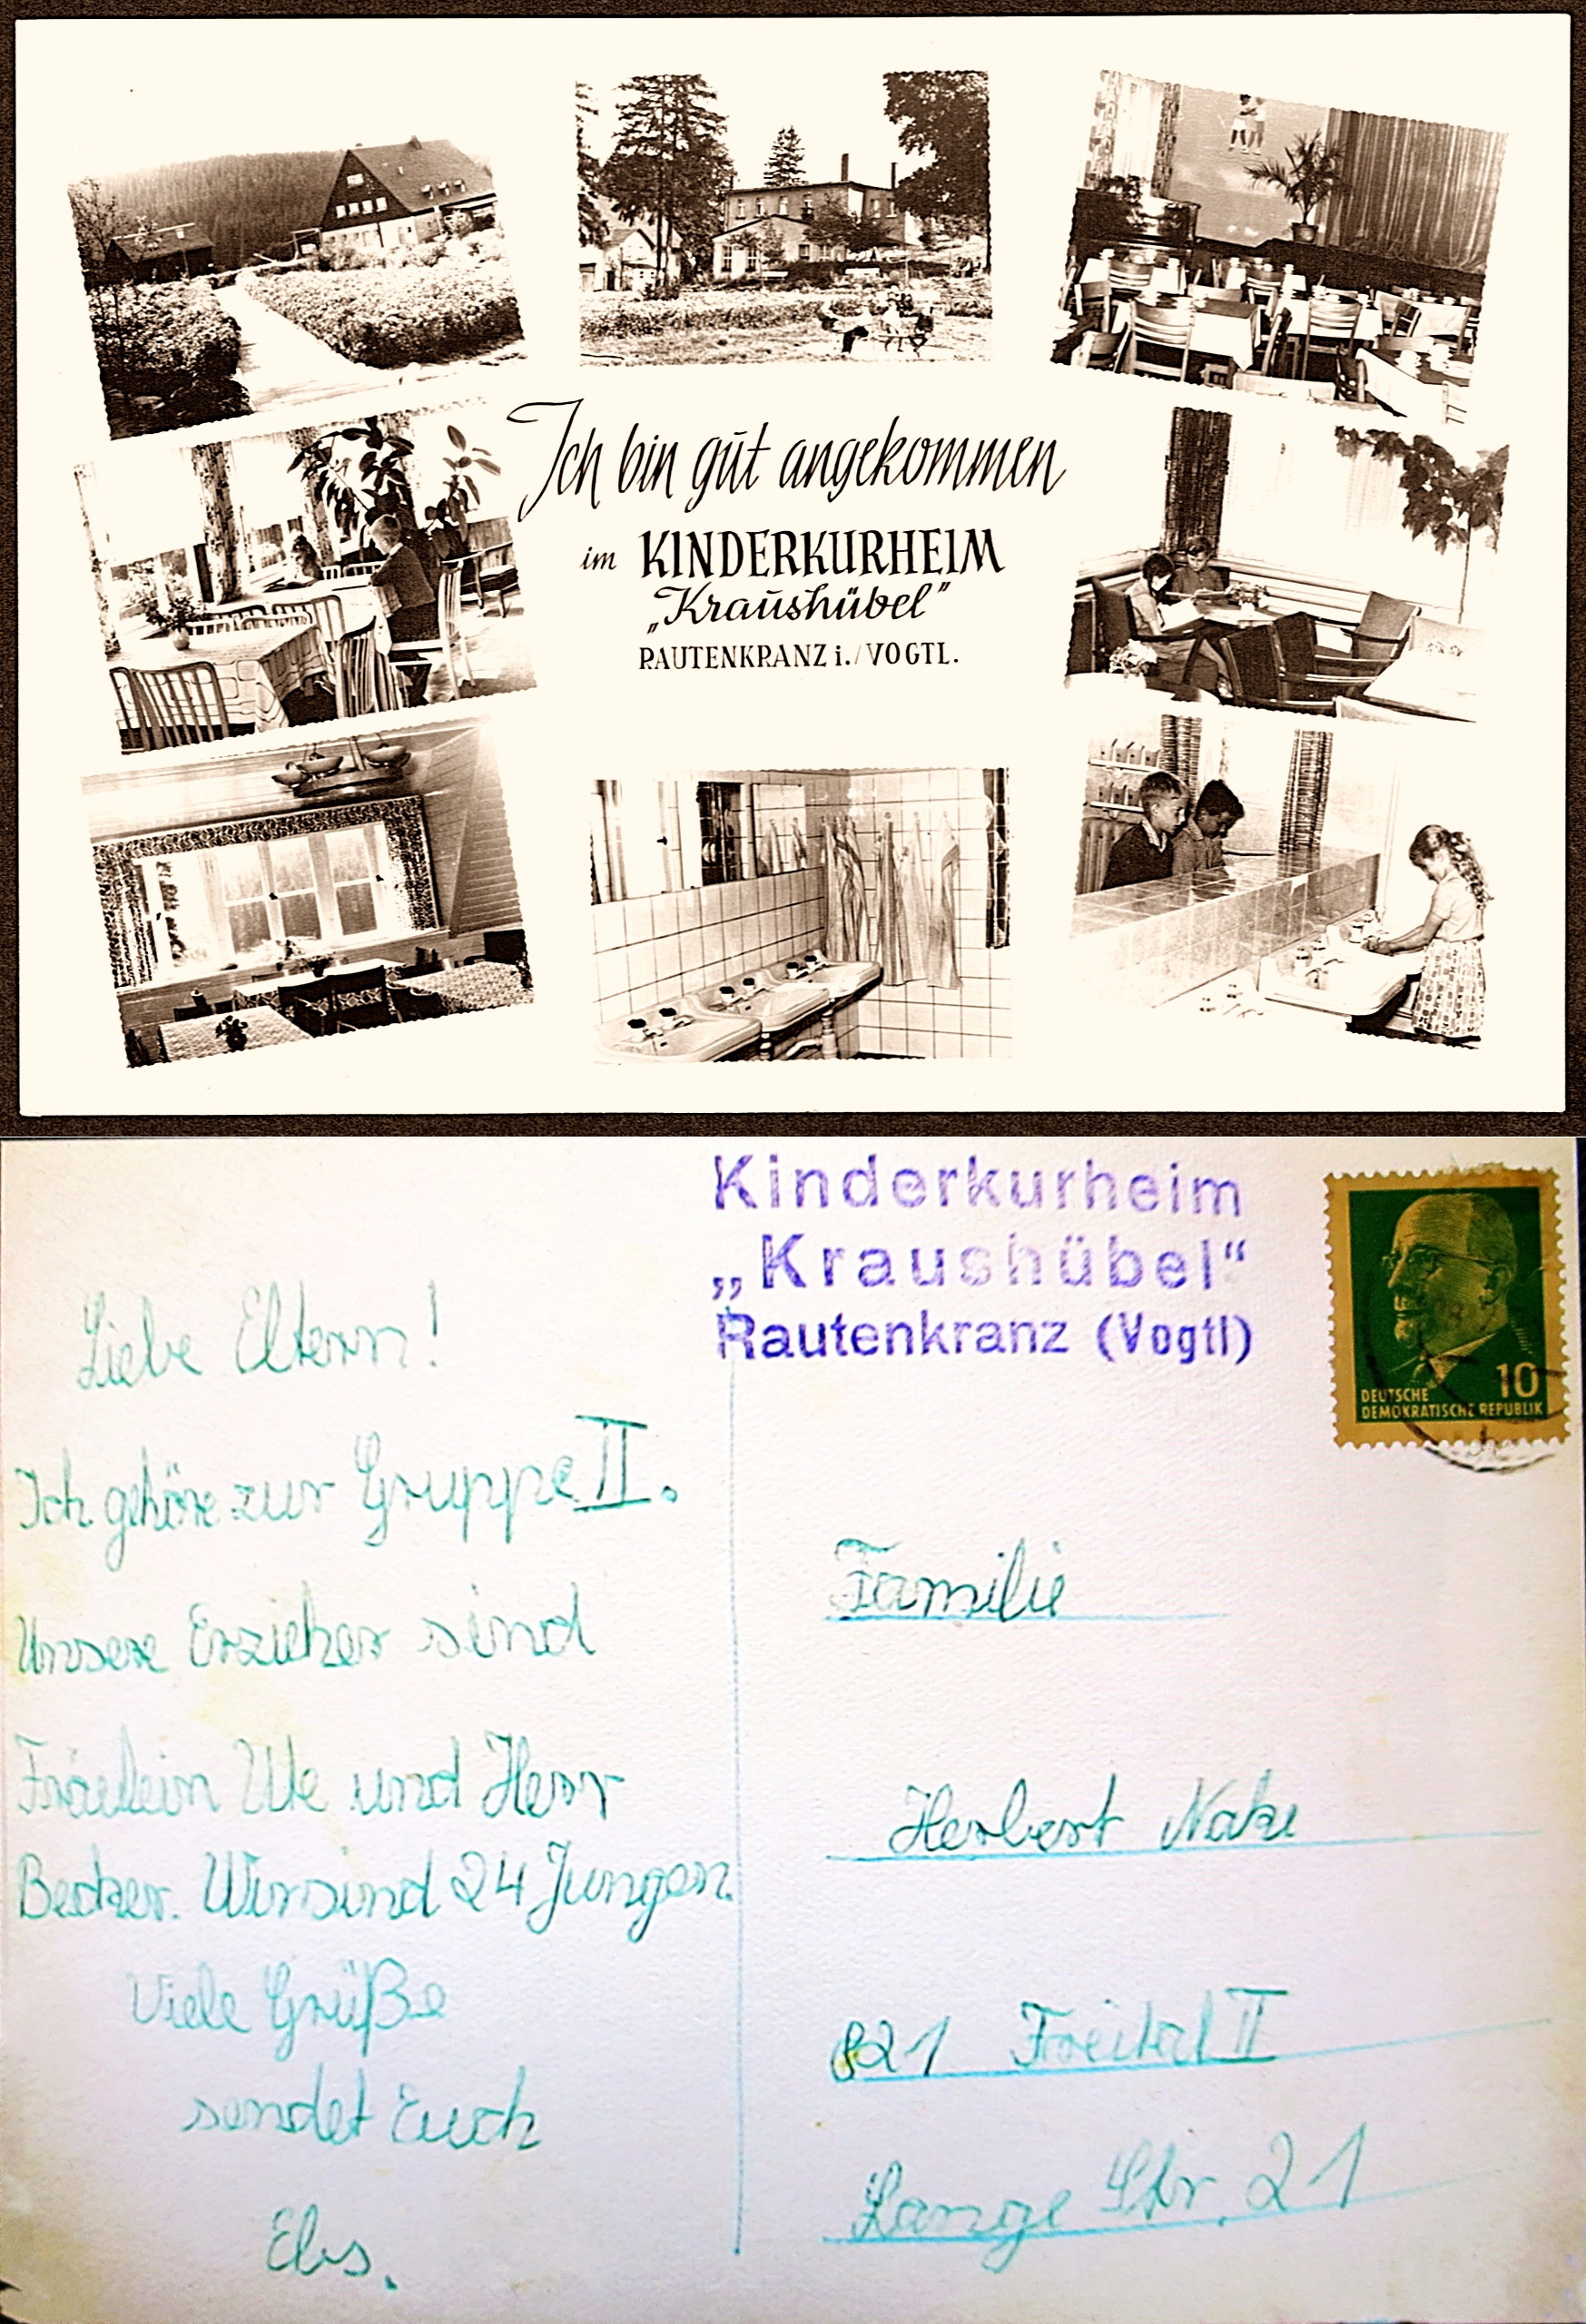 Ich bin gut angekommen
im KINDERKURHEIM
„Kraushübel"
RAUTENKRANZ i./VOGTL.
Kinderkurheim
„Kraushübel“
Rautenkranz (Vogtl)
DEUTSCHE 10
DEMOKRATISCHE REPUBLIK
Liebe Eltern!
Ich gehöre zur Gruppe II.
Unsere Erzieher sind
Fräulein Ute und Herr
Becker. Wir sind 24 Jungen.
Viele Grüße
sendet Euch
Familie
Herbert
821 Freital II
Lange Str. 21